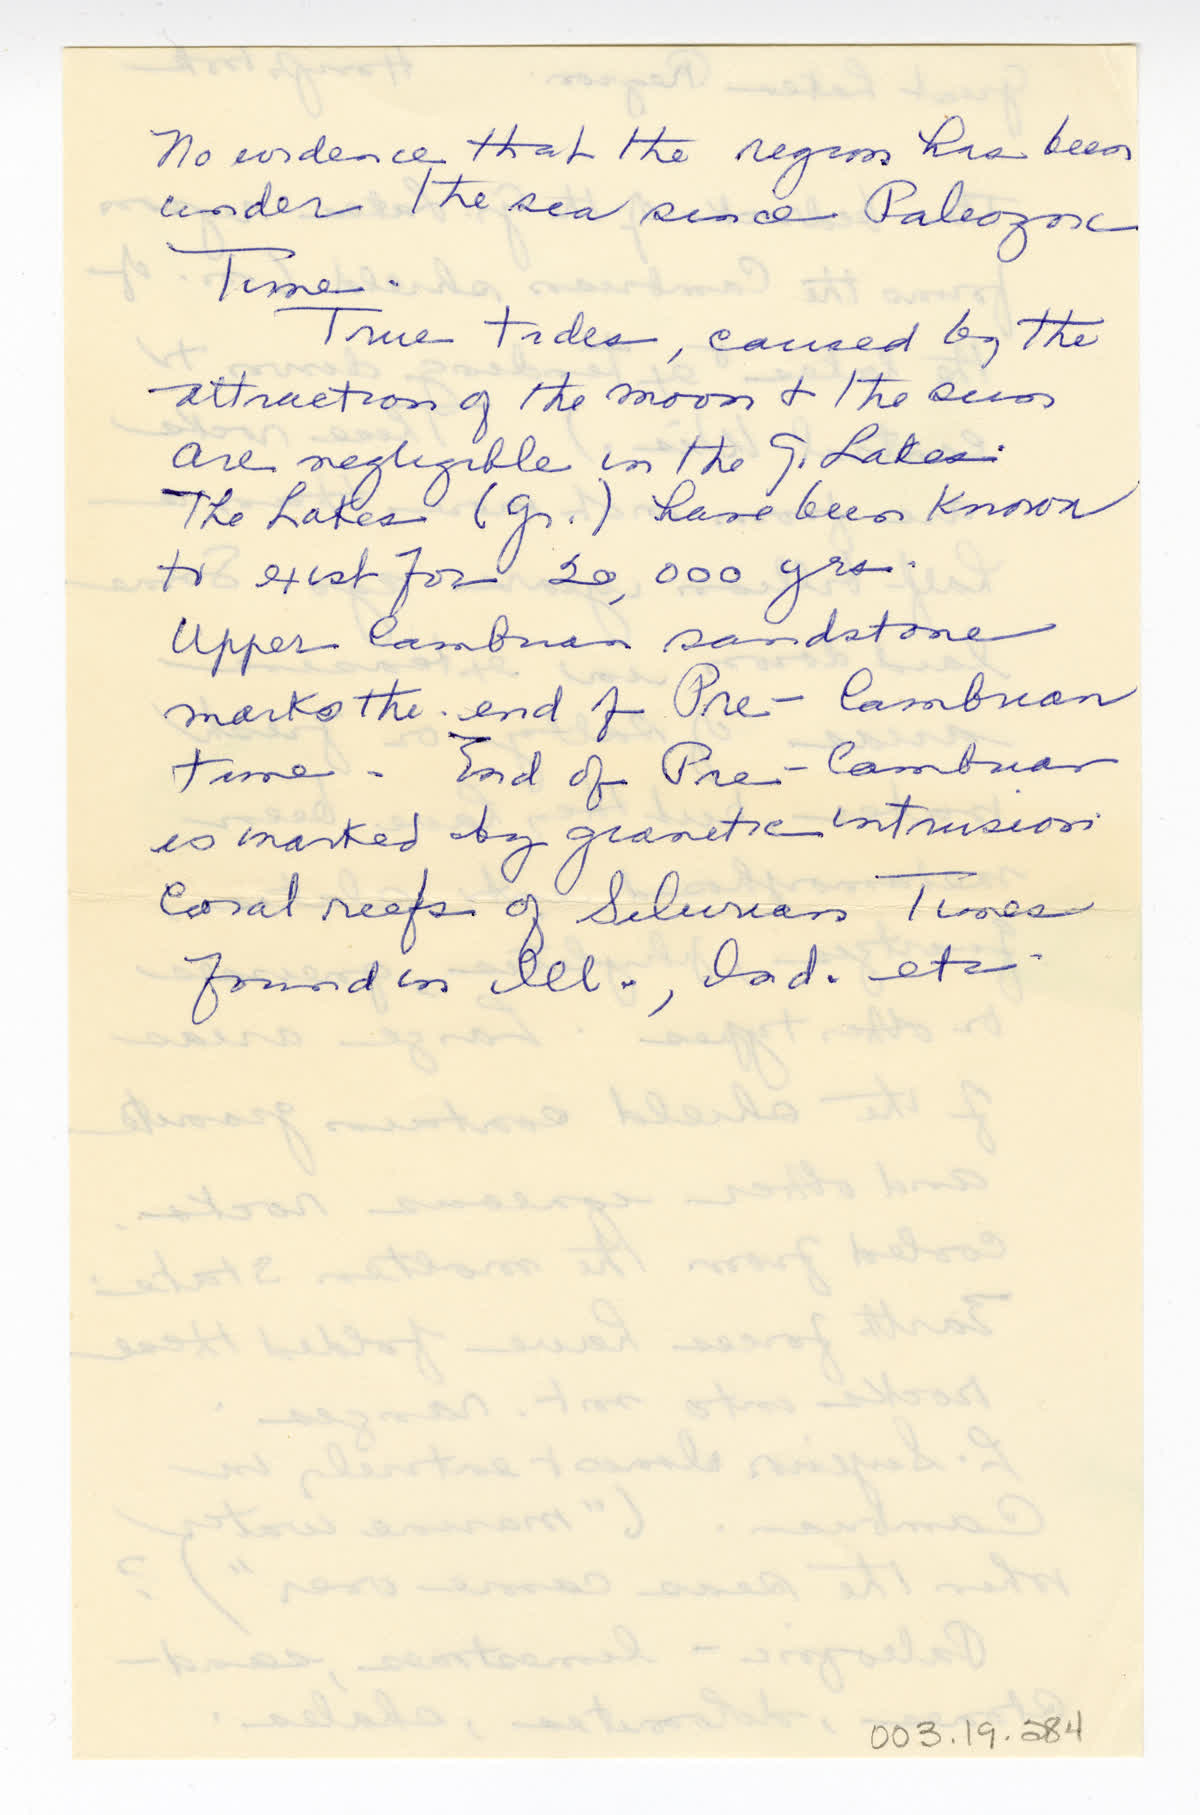 No evidence that the region has been
under the sea since Paleozoic
Time.
True tides, caused by the
attraction of the moon + the sun
are negligible in the G. Lakes.
The Lakes (Gr.) have been known
to exist for 20,000 yrs.
Upper Cambrian sandstone
marks the end of Pre-Cambrian
time. End of Pre-Cambrian
is marked by granetic intrusion
Coral reefs of Silurian Times
found in Ill., Ind. etc.
003.19.284